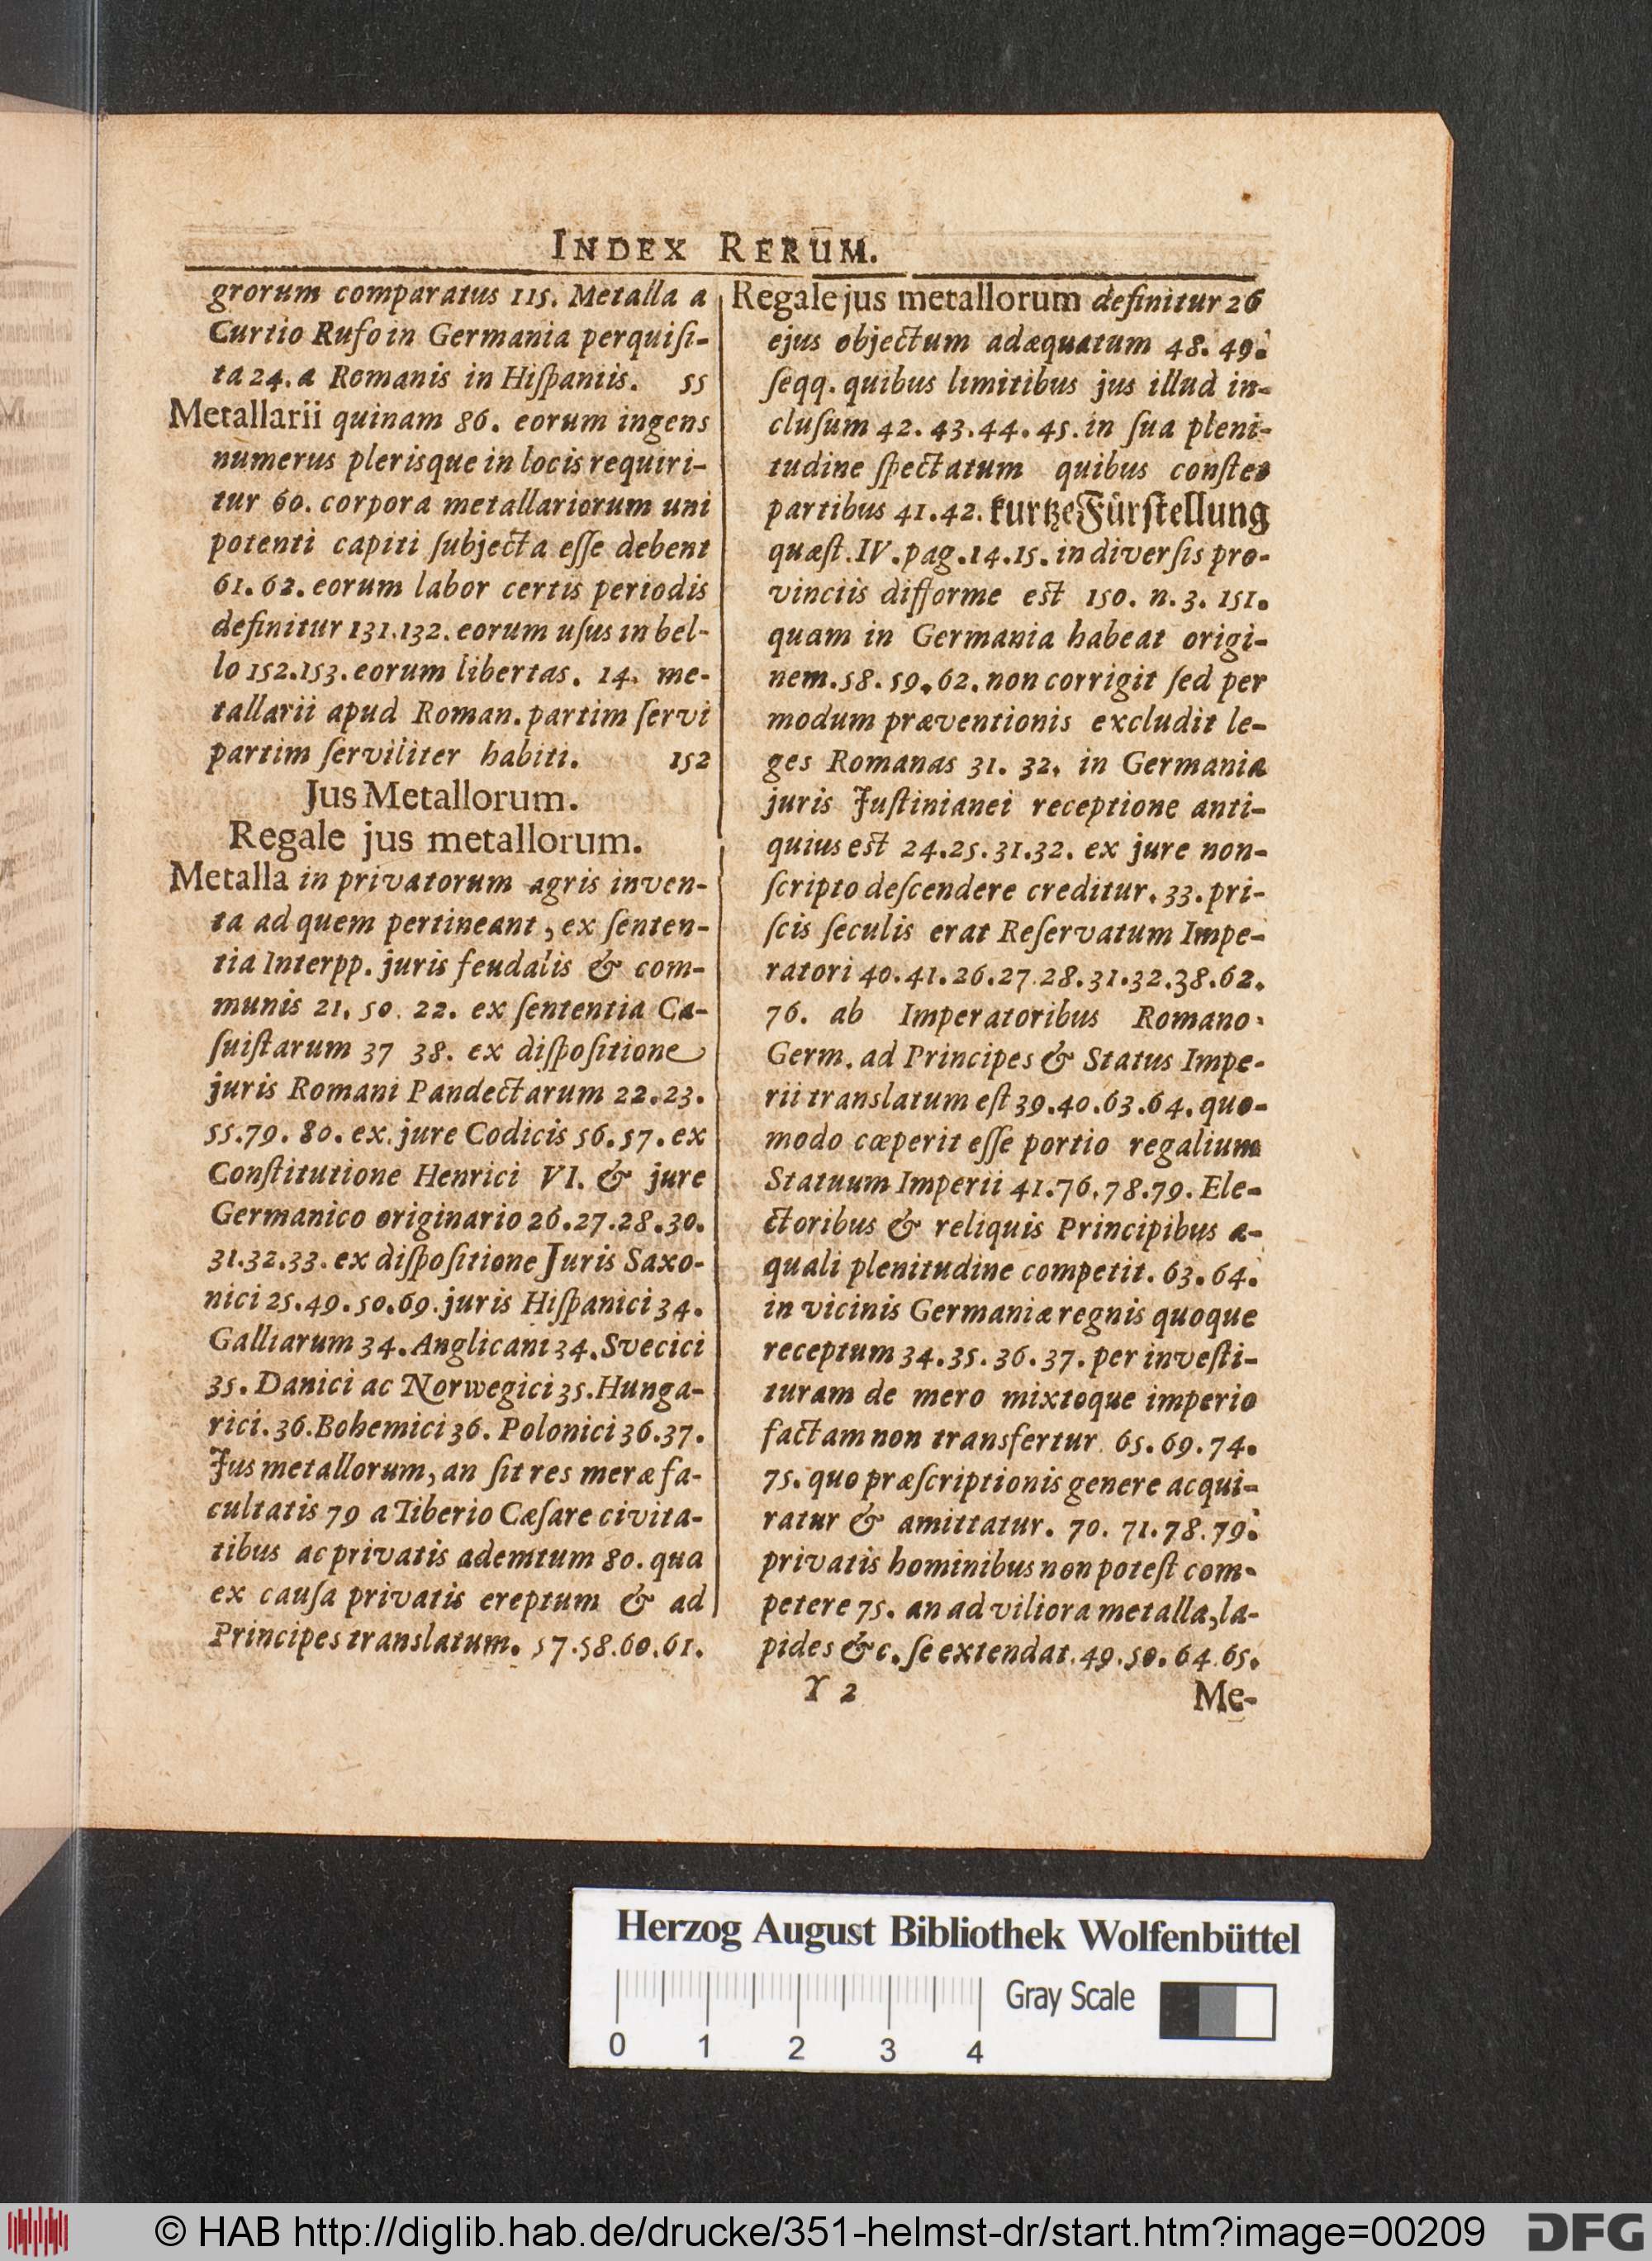 INDEX RERUM.
grorum comparatus 115. Metalla a
Curtio Rufo in Germania perquiſi-
ta 24. a Romanis in Hiſpaniis. 55
Metallarii quinam 86. eorum ingens
numerus plerisque in locis requiri-
tur 60. corpora metallariorum uni
potenti capiti ſubjecta eſſe debent
61. 62. eorum labor certis periodis
definitur 131.132. eorum uſus in bel-
lo 152.153. eorum libertas. 14. me-
tallarii apud Roman. partim ſervi
partim ſerviliter habiti. 152
Jus Metallorum.
Regale jus metallorum.
Metalla in privatorum agris inven-
ta ad quem pertineant, ex ſenten-
tia Interpp. juris feudalis & com-
munis 21. 50. 22. ex ſententia Ca-
ſuiſtarum 37 38. ex diſpoſitione
juris Romani Pandectarum 22.23.
55.79. 80. ex jure Codicis 56.57. ex
Conſtitutione Henrici VI. & jure
Germanico originario 26.27.28.30.
31.32.33. ex diſpoſitione Juris Saxo-
nici 25.49.50.69. juris Hiſpanici 34.
Galliarum 34. Anglicani 34. Svecici
35. Danici ac Norwegici 35. Hunga-
rici. 36. Bohemici 36. Polonici 36.37.
Jus metallorum, an ſit res meræ fa-
cultatis 79 a Tiberio Cæſare civita-
tibus ac privatis ademtum 80. qua
ex cauſa privatis ereptum & ad
Principes translatum. 57.58.60.61.
Regale jus metallorum definitur 26
ejus objectum adæquatum 48. 49.
ſeqq. quibus limitibus jus illud in-
cluſum 42. 43.44. 45. in ſua pleni-
tudine ſpectatum quibus conſtet
partibus 41.42. kurtze Fürſtellung
quæſt. IV. pag. 14.15. in diverſis pro-
vinciis difforme est 150. n. 3. 151.
quam in Germania habeat origi-
nem. 58. 59. 62. non corrigit ſed per
modum præventionis excludit le-
ges Romanas 31. 32. in Germania
juris Juſtinianei receptione anti-
quius est 24.25.31.32. ex jure non-
ſcripto deſcendere creditur. 33. pri-
ſcis ſeculis erat Reſervatum Impe-
ratori 40. 41. 26.27.28.31.32.38.62.
76. ab Imperatoribus Romano-
Germ. ad Principes & Status Impe-
rii translatum eſt 39.40.63.64. quo-
modo cœperit eſſe portio regalium
Statuum Imperii 41.76.78.79. Ele-
ctoribus & reliquis Principibus a-
quali plenitudine competit. 63. 64.
in vicinis Germaniæ regnis quoque
receptum 34.35.36.37. per inveſti-
turam de mero mixtoque imperio
factam non transfertur. 65. 69. 74.
75. quo præſcriptionis genere acqui-
ratur & amittatur. 70. 71.78.79.
privatis hominibus non poteſt com-
petere 75. an ad viliora metalla, la-
pides &c. ſe extendat. 49.50. 64.65.
Y 2
Me-
Herzog August Bibliothek Wolfenbüttel
Gray Scale
0 1 2 3 4
© HAB http://diglib.hab.de/drucke/351-helmst-dr/start.htm?image=00209
DFG